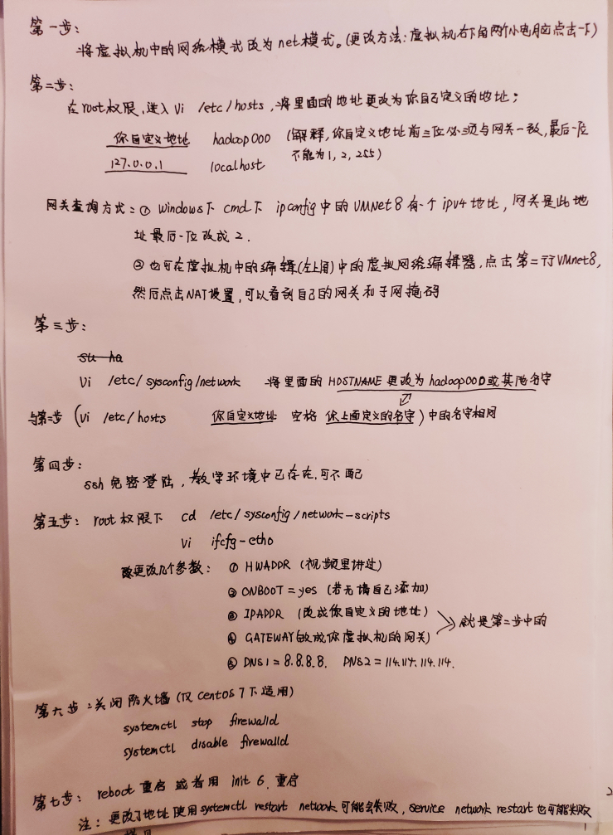 第一步:
将虚拟机中的网络模式改为net模式。(更改方法:虚拟机右下角两个小电脑点击一下)
第二步:
在root权限,进入 vi /etc/hosts,将里面的地址更改为你自己定义的地址;
你自定义地址 hadoop000 (解释,你自定义地址前三位必须与网关一致,最后一位
127.0.0.1 localhost 不能为1,2,255)
网关查询方式:① windows下 cmd下 ipconfig中的VMNet8有一个ipv4地址,网关是此地
址最后一位改成2.
② 也可在虚拟机中的编辑(左上角)中的虚拟网络编辑器,点击第二行VMnet8,
然后点击NAT设置,可以看到自己的网关和子网掩码
第三步:
su ha
Vi /etc/sysconfig/network 将里面的HOSTNAME更改为hadoop000或其他名字
与第二步 (vi /etc/hosts 你自定义地址 空格 你上面定义的名字)中的名字相同
第四步:
ssh免密登陆,教学环境中已存在,可不配
第五步: root权限下 cd /etc/sysconfig/network-scripts
vi ifcfg-etho
更改几个参数: ① HWADDR (视频里讲过)
② ONBOOT=yes (若无请自己添加)
③ IPADDR (改成你自定义的地址)
④ GATEWAY(改成你虚拟机的网关) 就是第二步中的
⑤ DNS1=8.8.8.8. DNS2=114.114.114.114.
第六步:关闭防火墙(仅Centos7下适用)
systemctl stop firewalld
systemctl disable firewalld
第七步: reboot 重启 或者用 init 6.重启
注: 更改了地址使用systemctl restart network可能会失败,service network restart也可能失败